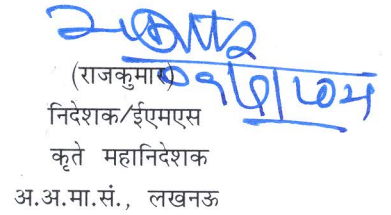 (राजकुमार)
निदेशक/ईएमएस
कृते महानिदेशक
अ.अ.मा.सं., लखनऊ